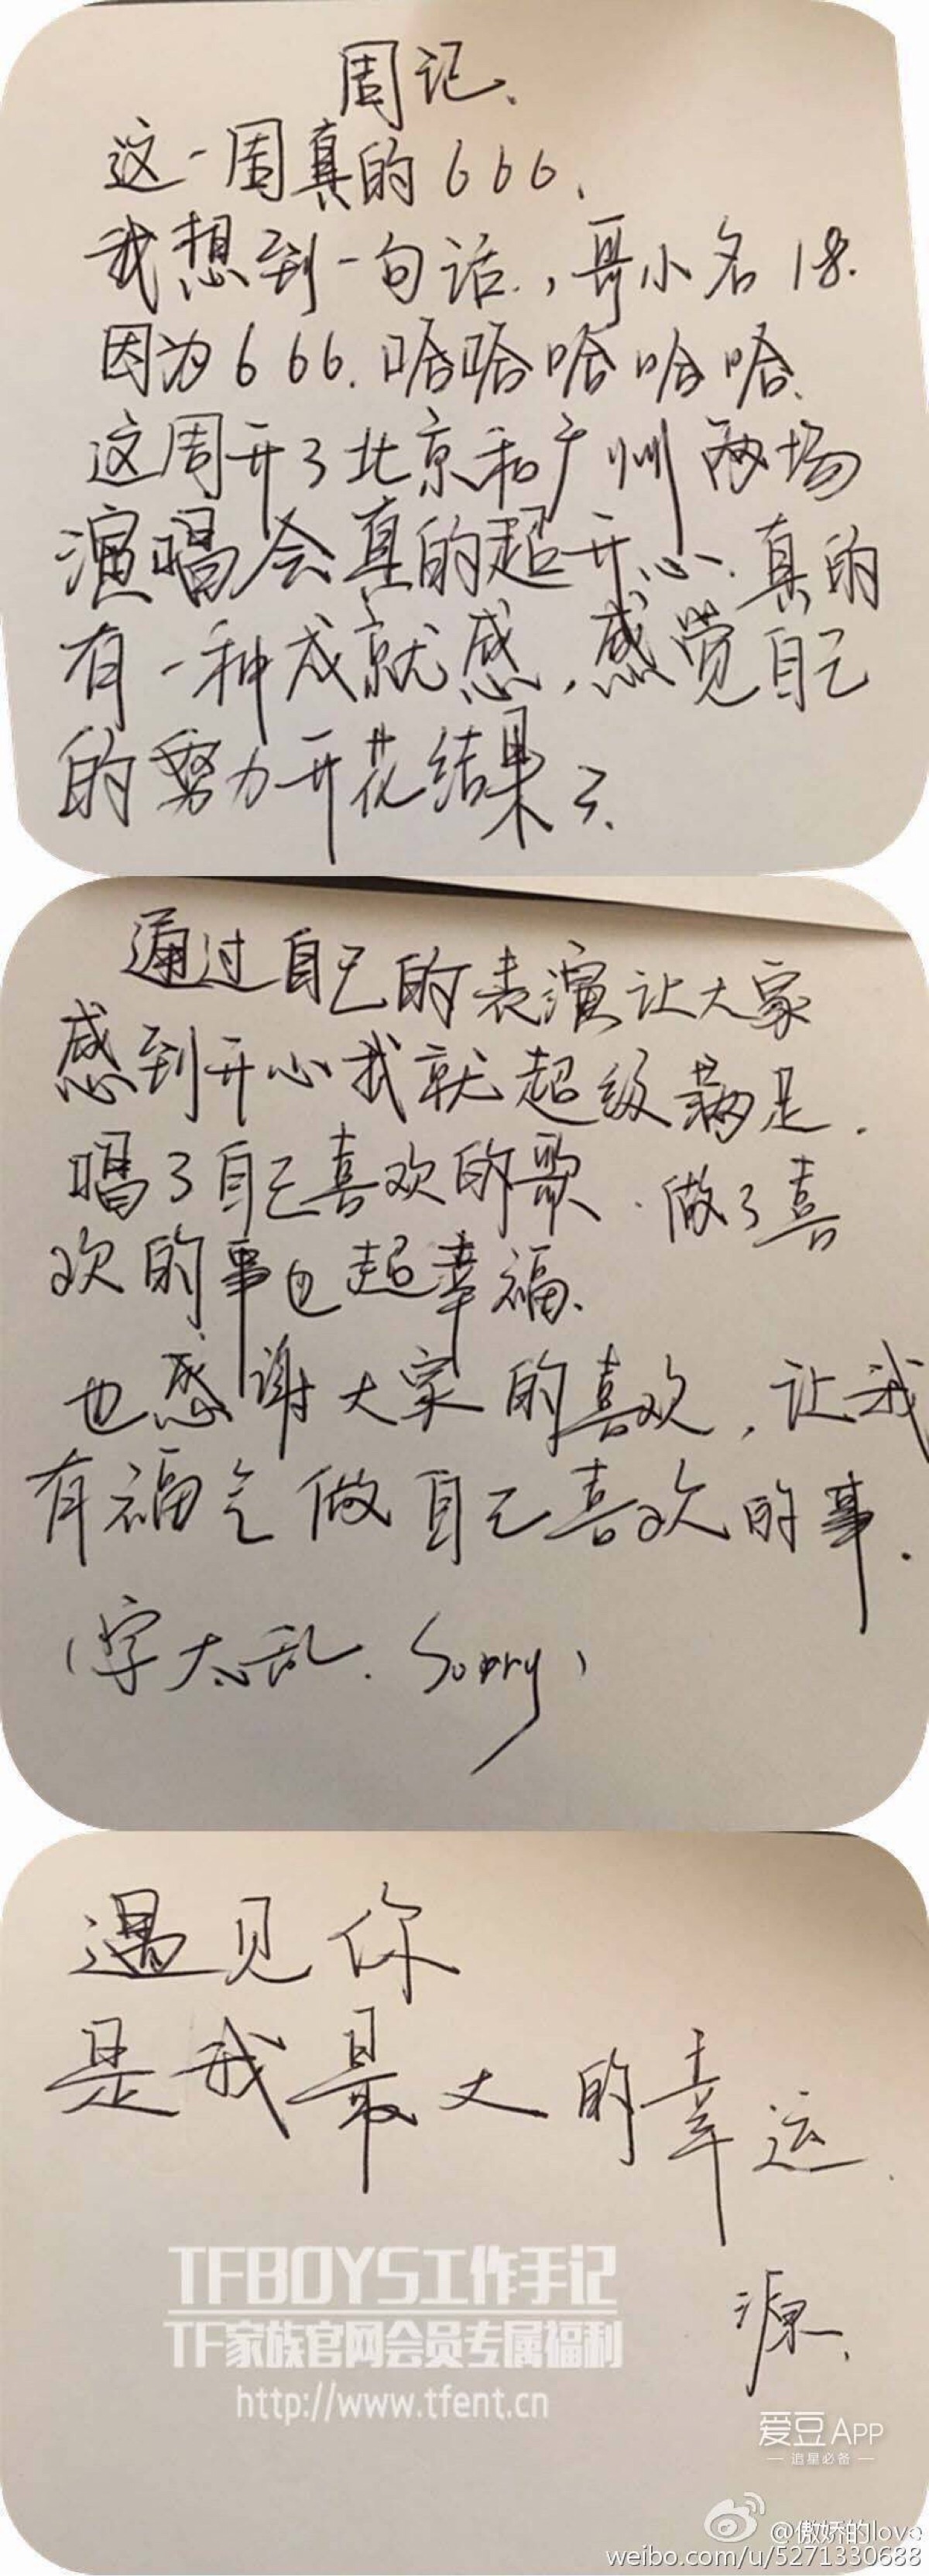 周记.
这一周真的666.
我想到一句话.,哥小名18.
因为666.哈哈哈哈哈.
这周开了北京和广州两场
演唱会真的超开心.真的
有一种成就感,感觉自己
的努力开花结果了.
通过自己的表演让大家
感到开心我就超级满足.
唱了自己喜欢的歌.做了喜
欢的事也超幸福.
也感谢大家的喜欢,让我
有福气做自己喜欢的事.
(字太乱.Sorry)
遇见你
是我最大的幸运.
源.
TFBOYS工作手记
TF家族官网会员专属福利
http://www.tfent.cn
爱豆APP
— 追星必备 —
@傲娇的love
weibo.com/u/5271330688